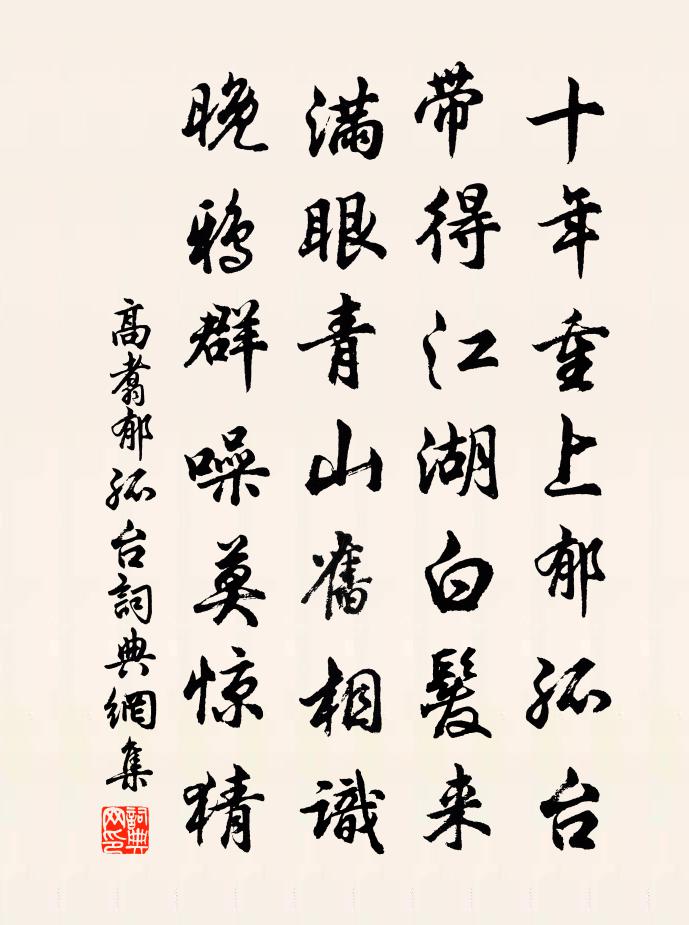 十年重上郁孤台
带得江湖白髮来
满眼青山舊相識
晚鸦群噪莫惊猜
高翥郁孤台詞典網集
詞典
网印